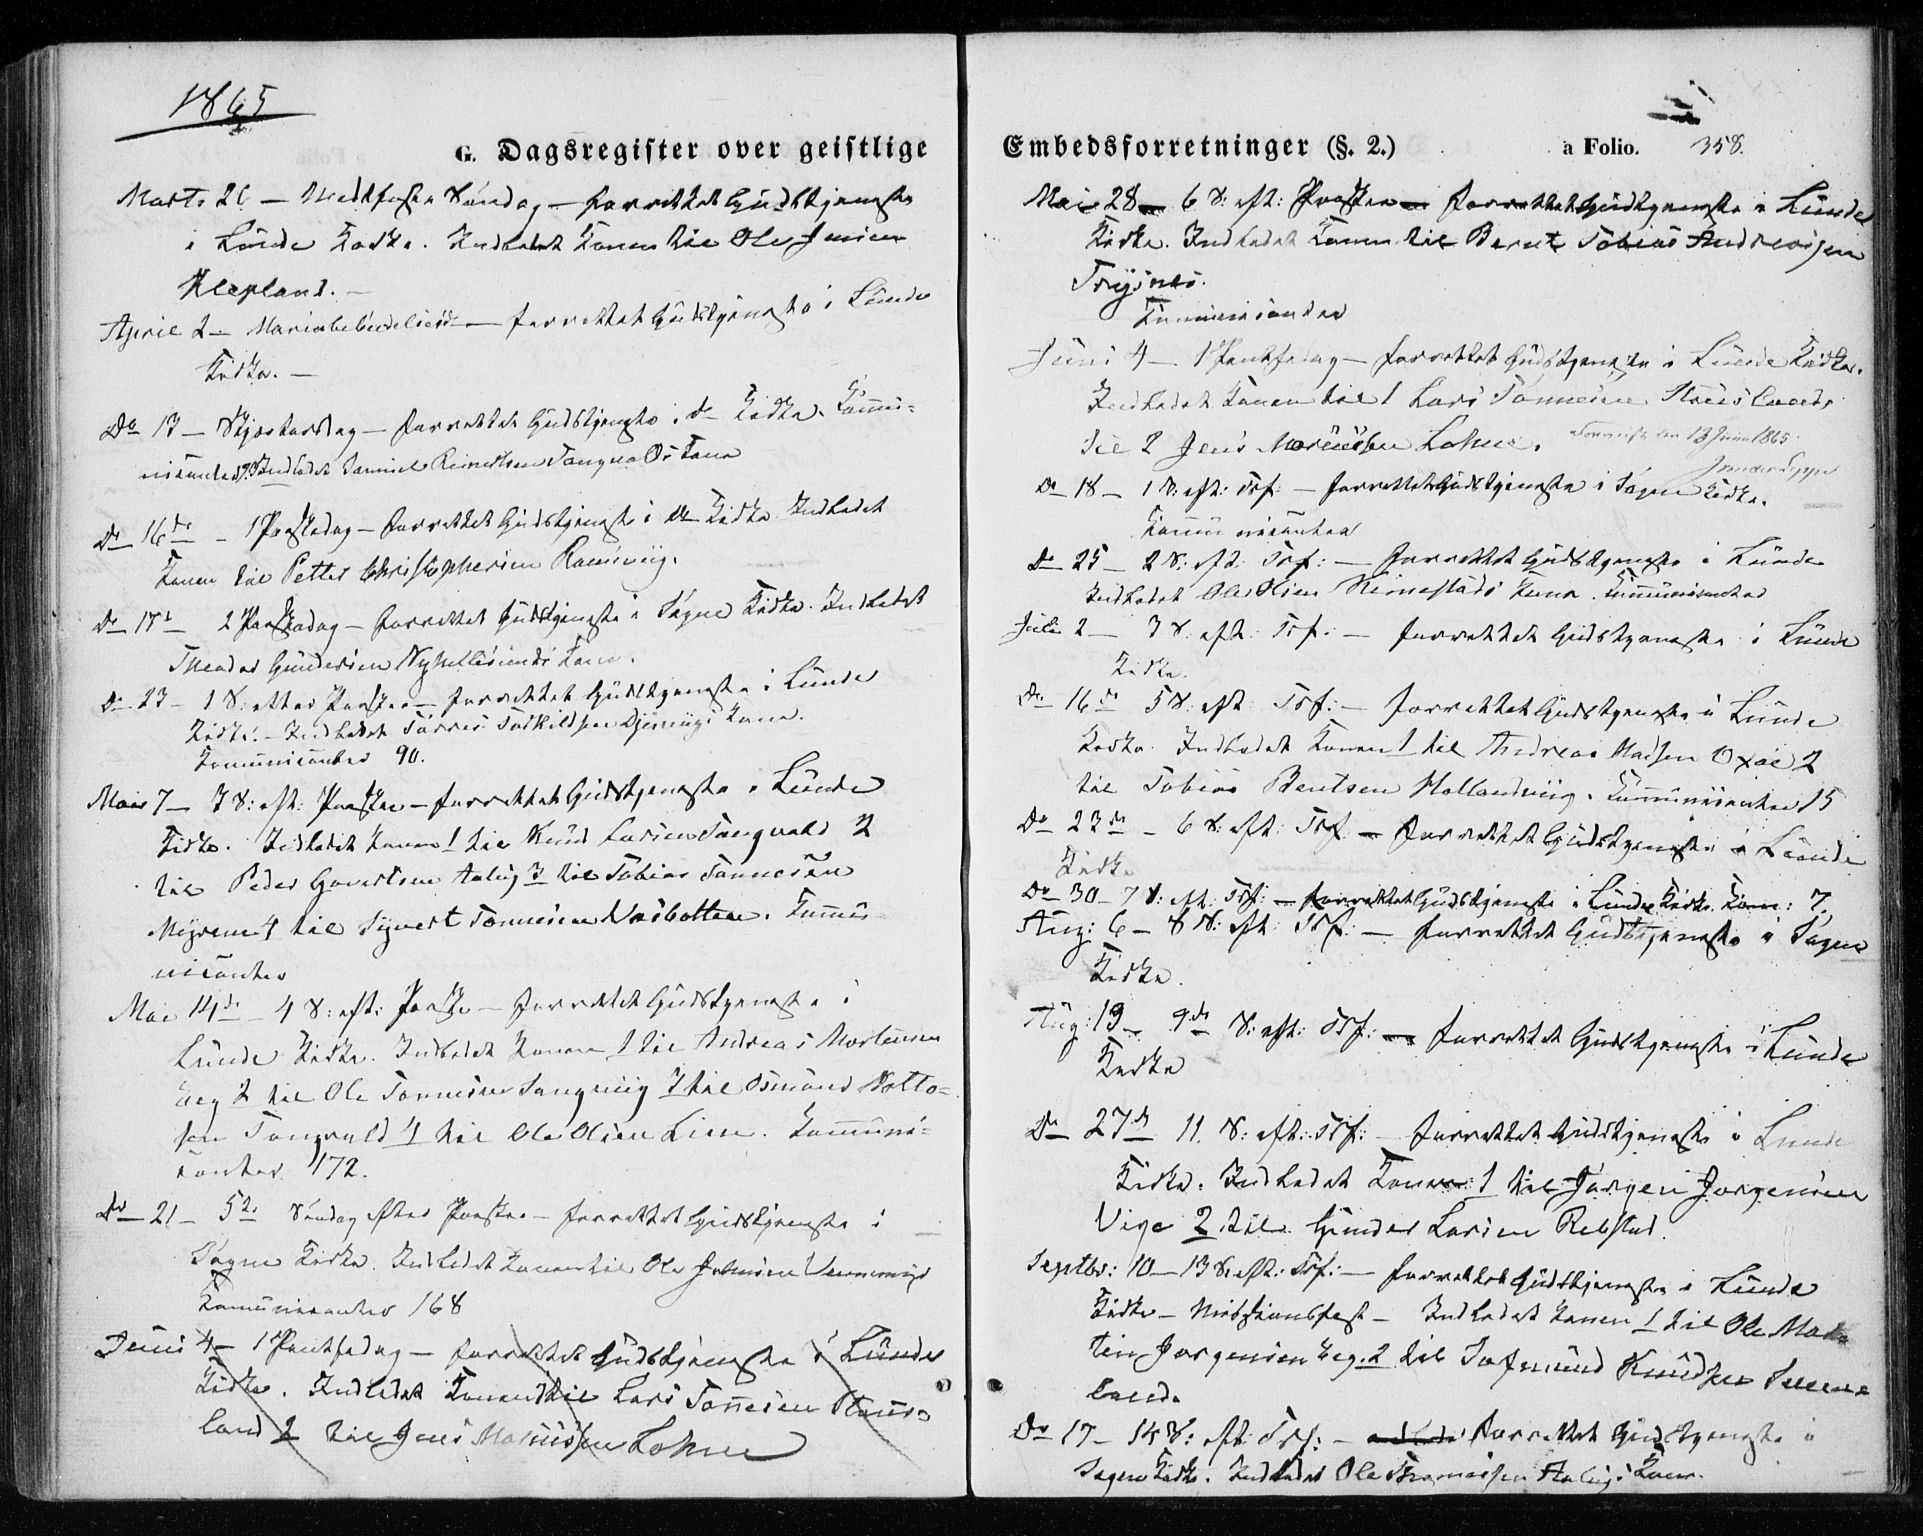 1865
G. Dagsregister over geistlige
Marts 26 — Midtfaste Søndag — forrettet Gudstjeneste
i Lunde Kirke. Indledet Konen til Ole Jensen
Klepland. —
April 2 — Mariæbebudelses — forrettet Gudstjeneste i Lunde
Kirke. —
Do 13 — Skjærtorsdag — forrettet Gudstjeneste i do Kirke. Commu-
nicanter Indledet Samuel Reinertsen Kone
Do 16de — 1 Paaskedag — forrettet Gudstjeneste i do Kirke Indledet
Konen til Petter Christophersen
Do 17de 2 Paaskedag — forrettet Gudstjeneste i Søgne Kirke. Indledet
Theodor Gundersen Kone.
Do 23 — 1 S: efter Paaske — forrettet Gudstjeneste i Lunde
Kirke. — Indledet Tørres Torkildsen Kone.
Komunicanter 90.
Mai 7 — 3 S: eft: Paaske — forrettet Gudstjeneste i Lunde
Kirke. Indledet Konen 1 til Knud Larsen Tangvald 2
til Peder Govertsen Aalvig 3 til Tobias Tønnesen
Myrene 4 til Syvert Tønnesen Næsbotten. Commu-
nicanter
Mai 14de — 4 S: eft: Paaske — forrettet Gudstjeneste i
Lunde Kirke. Indledet Konen 1 til Andreas Mortensen
Eeg 2 til Ole Tønnesen Langviig 3 til Osmund Notto-
sen Tangvald 4 til Ole Olsen Lien. Communi-
canter 172.
Do 21 — 5te Søndag efter Paaske — forrettet Gudstjeneste i
Søgne Kirke. Indledet Konen til Ole Johnsen
Komunicanter 168
Juni 4 — 1 Pintsedag — forrettet Gudstjeneste i Lunde
Kirke. Indledet Konen 1 til Lars Tønnesen Staus-
land 2 til Jens Lohne
Embedsforretninger (§. 2.) a Folio. 358.
Mai 28 — 6 S: eft: Paaske — forrettet Gudstjeneste i Lunde
Kirke. Indledet Konen til Bernt Tobias Andreassen
Trysnes.
Communicanter
Juni 4 — 1 Pintsedag — forrettet Gudstjeneste i Lunde Kirke.
Indledet Konen til 1 Lars Tønnesen Stausland
til 2 Jens Lohne. den 13 Juni 1865.
Do 18 — 1 S: eft: Trf: — forrettet Gudstjeneste i Søgne Kirke.
Communicanter
Do 25 — 2 S: eft: Trf: — forrettet Gudstjeneste i Lunde
Indledet Ole Olsen Kone. Communicanter
Juli 2 — 3 S: eft: Trf: — forrettet Gudstjeneste i Lunde
Kirke.
Do 16de 5 S: eft: Trf: — forrettet Gudstjeneste i Lunde
Kirke. Indledet Konen 1 til Andreas Madsen 2
til Tobias Berntsen Hellandviig. Communicanter 15
Do 23de — 6 S: eft: Trf — forrettet Gudstjeneste i Lunde
Kirke
Do 30 — 7 S: eft: Trf: — forrettet Gudstjeneste i Lunde Kirke. Kom: 7.
Aug: 6 — 8 S: eft: Trf: — forrettet Gudstjeneste i Søgne
Kirke.
Aug: 13 — 9de S: eft: Trf: — forrettet Gudstjeneste i Lunde
Kirke
Do 27de 11. S: eft: Trf: — forrettet Gudstjeneste i Lunde
Kirke. Indledet Konen: 1 til Jørgen Jørgensen
Vige 2 til Gunder Larsen Rebstad.
Septbr: 10 — 13 S: eft: Trf: — forrettet Gudstjeneste i Lunde
Kirke — Missionsfest — Indledet Konen 1 til Ole Mar-
tin Jørgensen Eeg. 2 til Knudsen
land.
Do 17 — 14 S: eft: Trf: — forrettet Gudstjeneste i
Søgne Kirke. Indledet Ole Thomassen Aalvigs Kone.